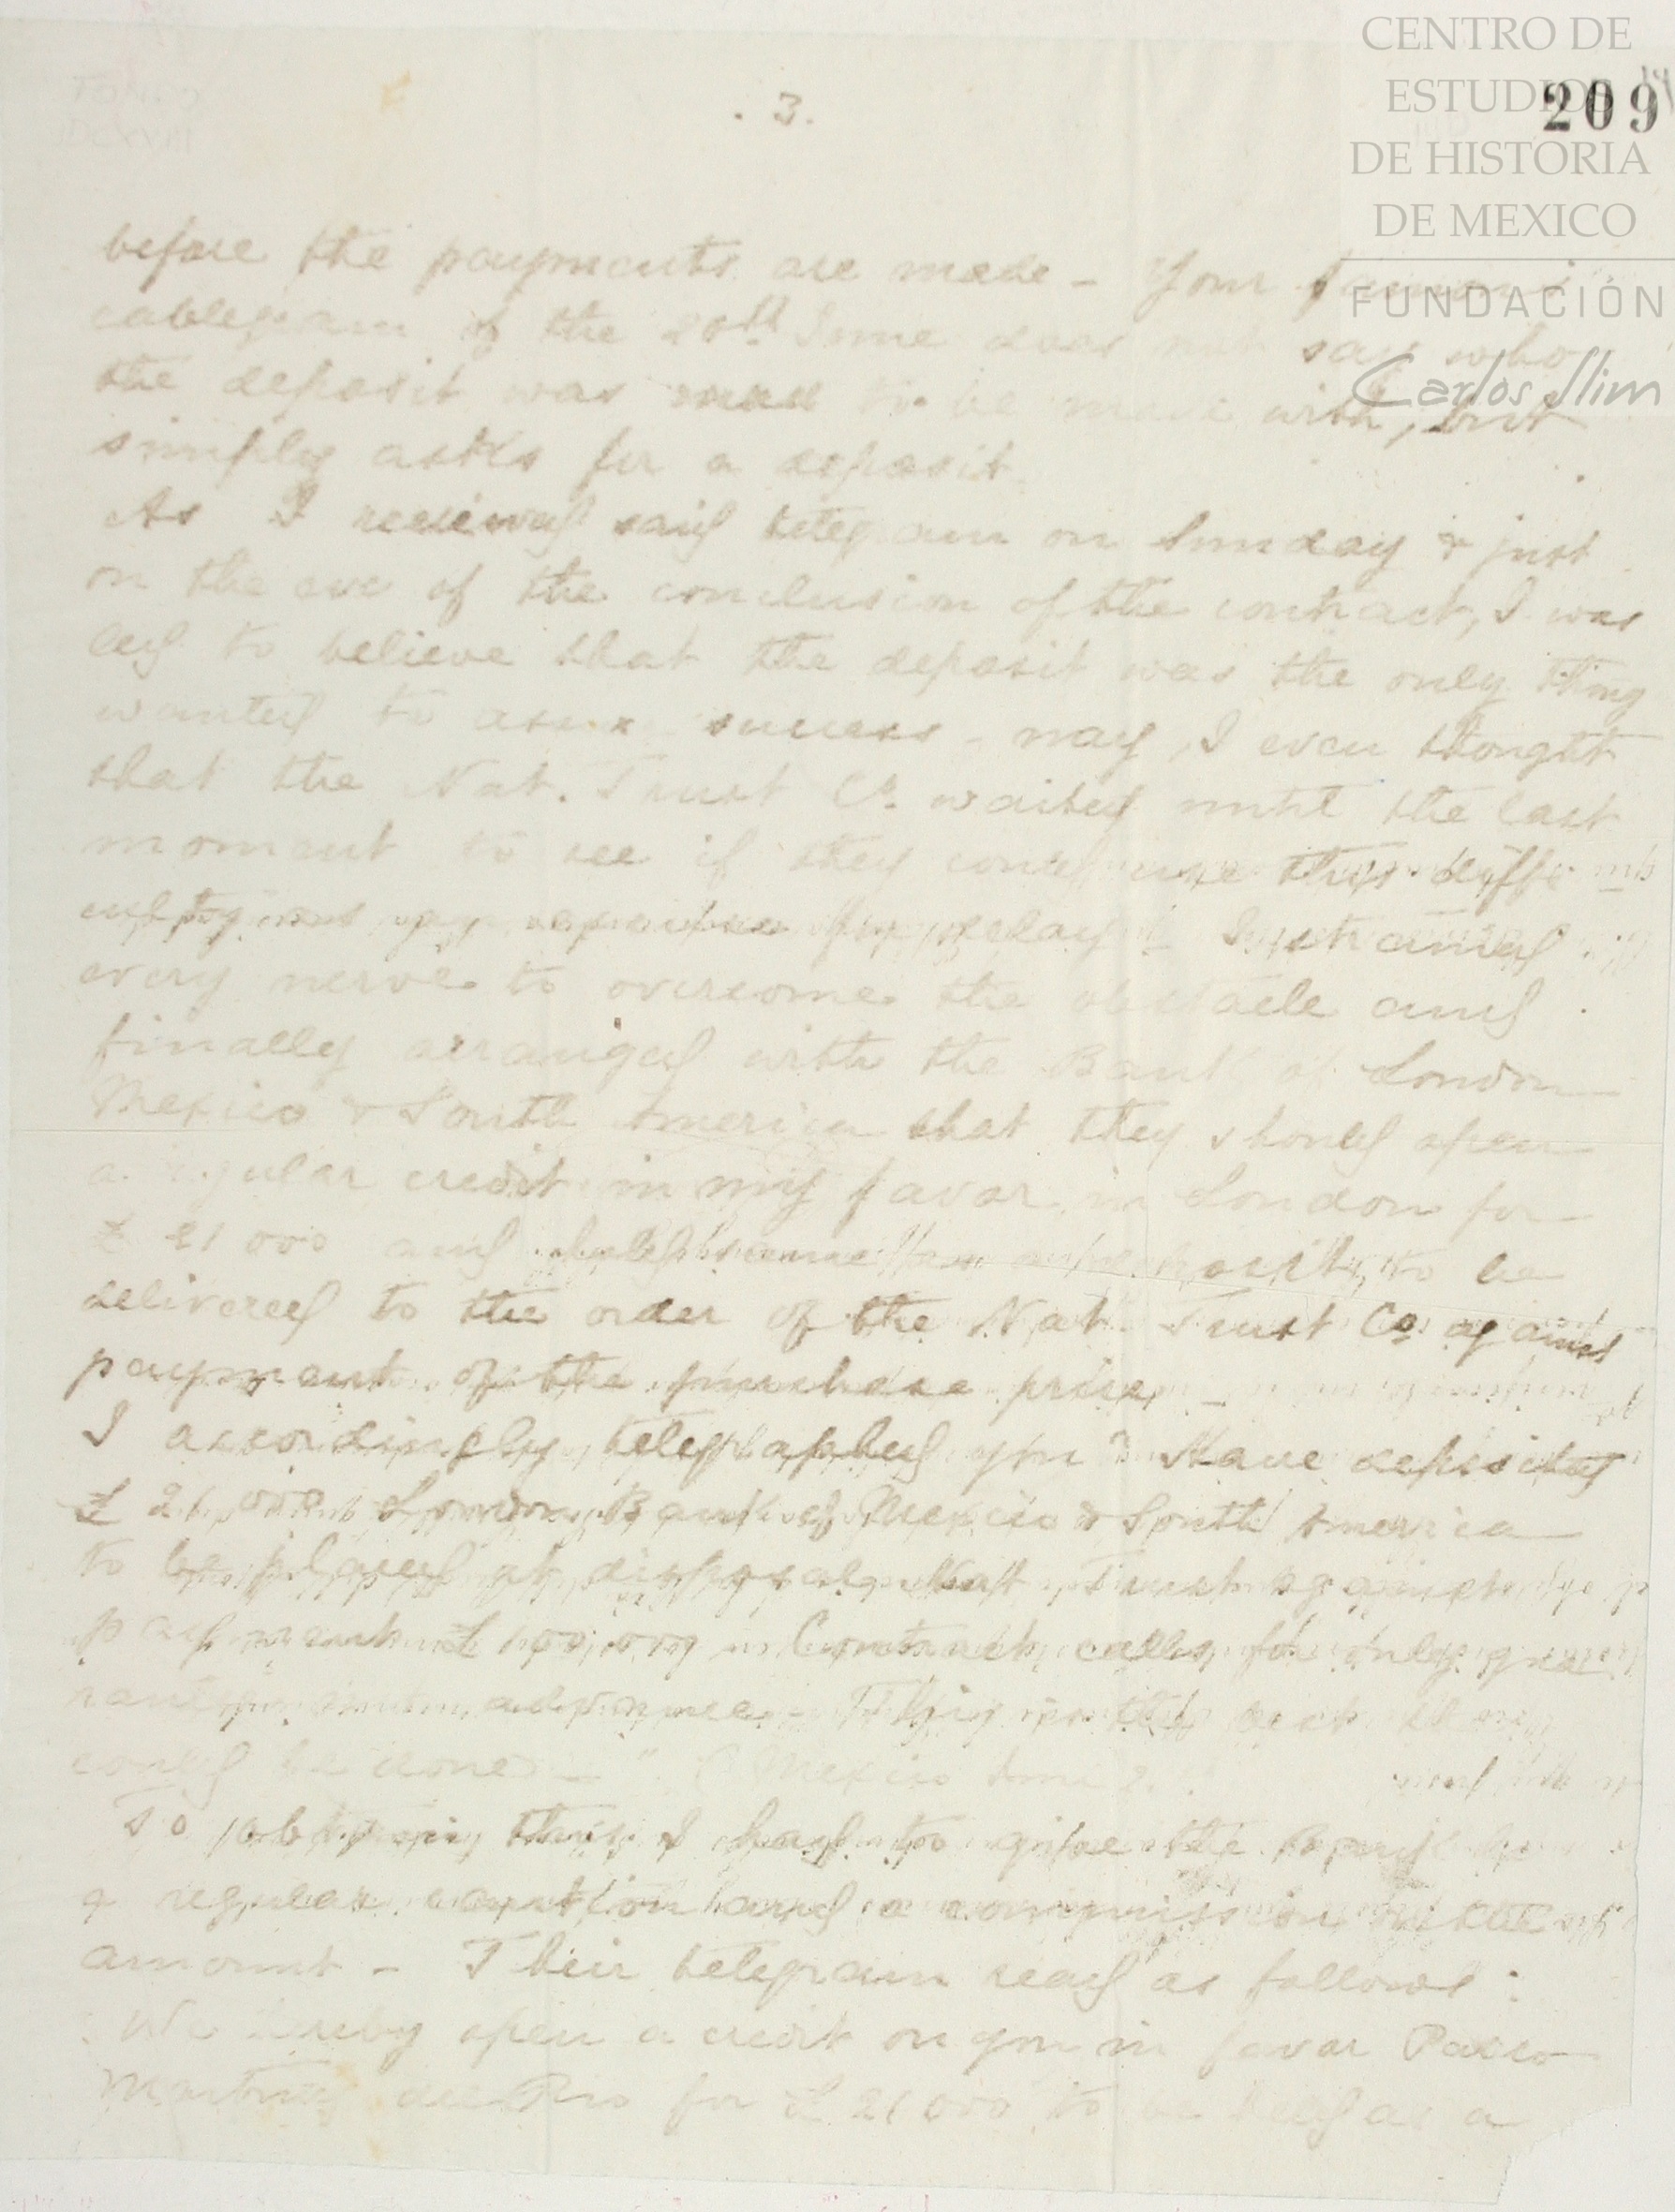 CENTRO DE
ESTUDIOS
DE HISTORIA
DE MEXICO
FUNDACIÓN
Carlos Slim
209
. 3.
before the payments are made - Your
cablegram of the 20th June does not say who
the deposit was to be made with, but
simply asks for a deposit.
As I received said telegram on Sunday & just
on the eve of the conclusion of the contract, I was
led to believe that the deposit was the only thing
wanted to assure success - nay, I even thought
that the Nat. Trust Co. waited until the last
moment to see if they could use this diffi
culty as delay I strained
every nerve to overcome the obstacle and
finally arranged with the Bank of London
Mexico & South America that they should open
a regular credit in my favor in London for
£ 21 000 and to be
delivered to the order of the Nat. Trust Co against
payment of the purchase price -
I accordingly telegraphed you "Have deposited
£ 21,000 London Bank of Mexico & South America
to be placed at disposal Nat. Trust against
payment £ 100,000 Contract calls for only gua
rantee advance - This is the best
could be done - " (Mexico June
To obtain this I had to give the Bank
a regular caution and a commission on the
amount - Their telegram read as follows :
We hereby open a credit on you in favor Pablo
Martinez del Rio for £ 21 000 to be held as a